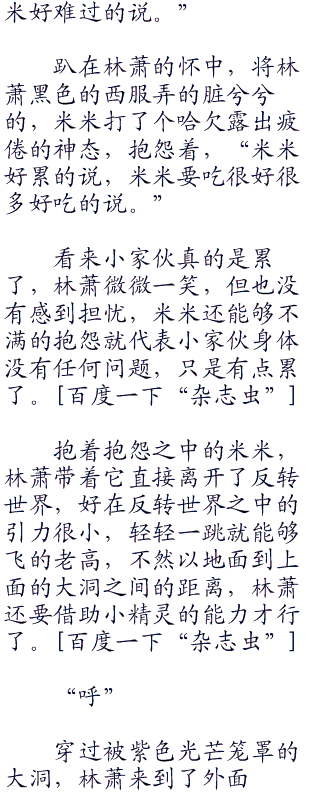 米好难过的说。”
趴在林萧的怀中，将林
萧黑色的西服弄的脏兮兮
的，米米打了个哈欠露出疲
倦的神态，抱怨着，“米米
好累的说，米米要吃很好很
多好吃的说。”
看来小家伙真的是累
了，林萧微微一笑，但也没
有感到担忧，米米还能够不
满的抱怨就代表小家伙身体
没有任何问题，只是有点累
了。[百度一下“杂志虫”]
抱着抱怨之中的米米，
林萧带着它直接离开了反转
世界，好在反转世界之中的
引力很小，轻轻一跳就能够
飞的老高，不然以地面到上
面的大洞之间的距离，林萧
还要借助小精灵的能力才行
了。[百度一下“杂志虫”]
“呼”
穿过被紫色光芒笼罩的
大洞，林萧来到了外面